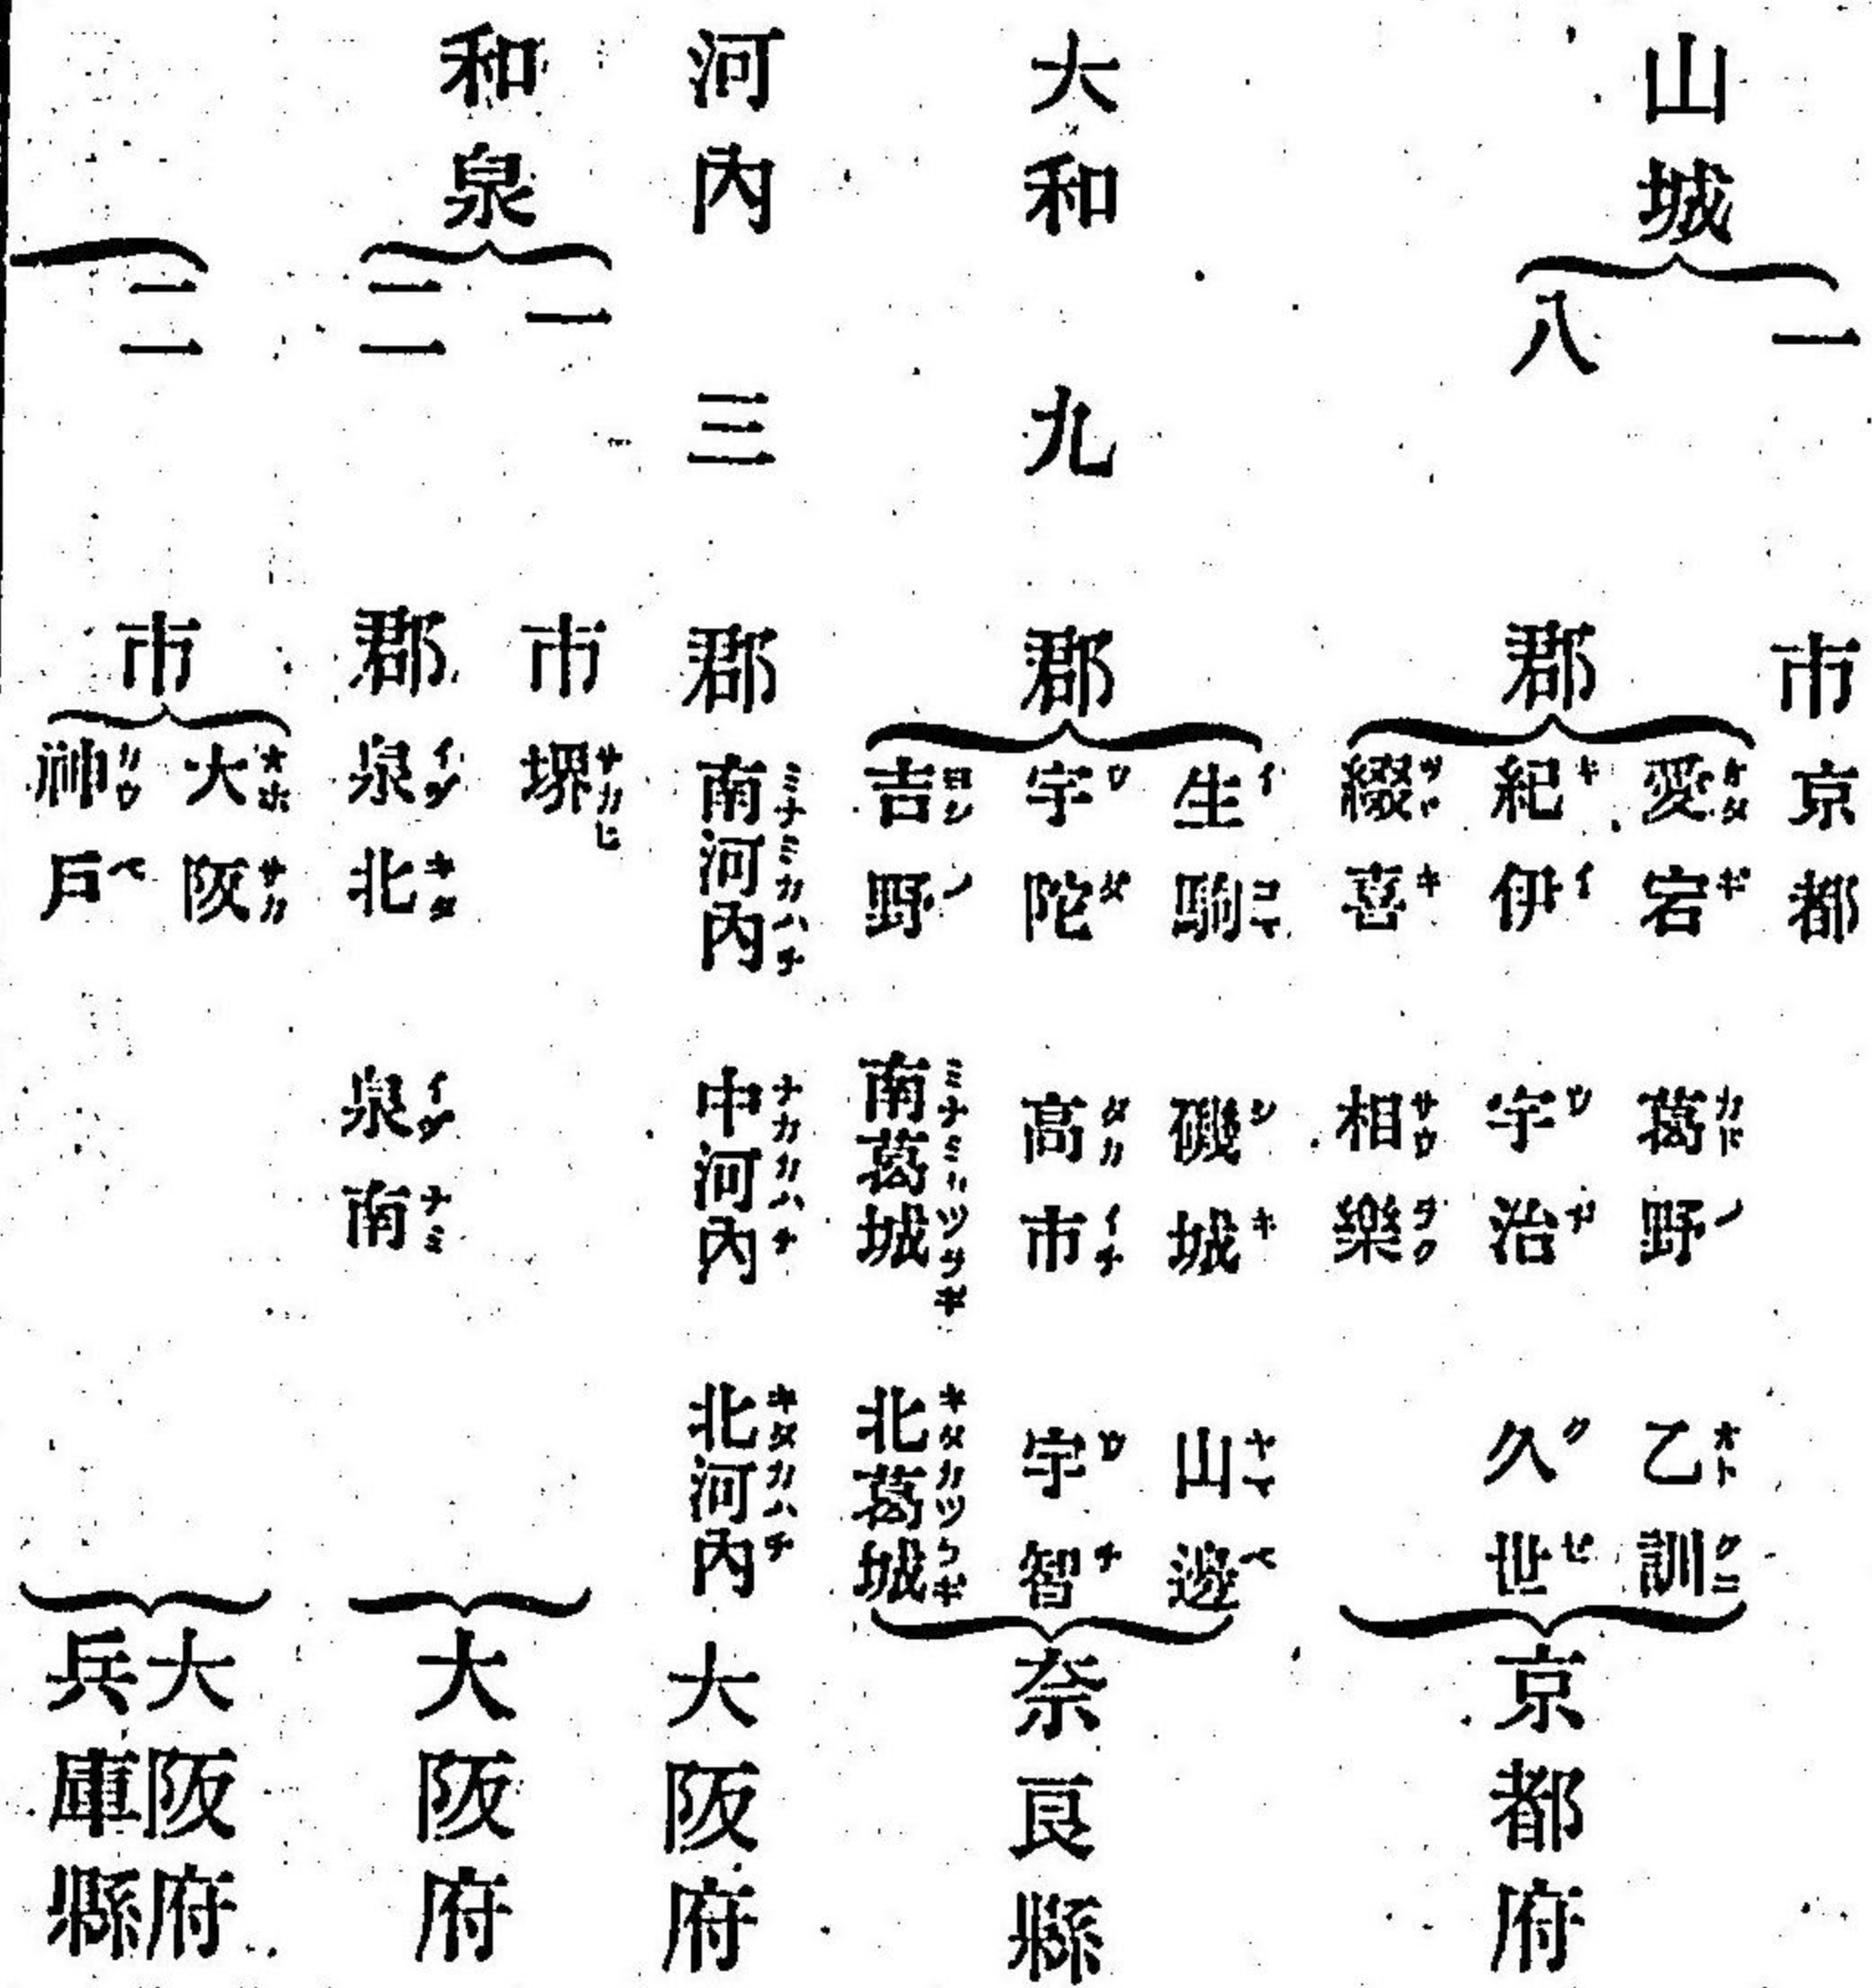 山城
一市 京都
八郡
愛宕 葛野 乙訓
紀伊 宇治 久世
綴喜 相樂
京都府
大和 九郡
生駒 磯城 山邊
宇陀 高市 宇智
吉野 南葛城 北葛城
奈良縣
河內 三郡 南河內 中河內 北河內 大阪府
和泉
一市 堺
二郡 泉北 泉南
大阪府
二市
大阪
神戶
大阪府
兵庫縣